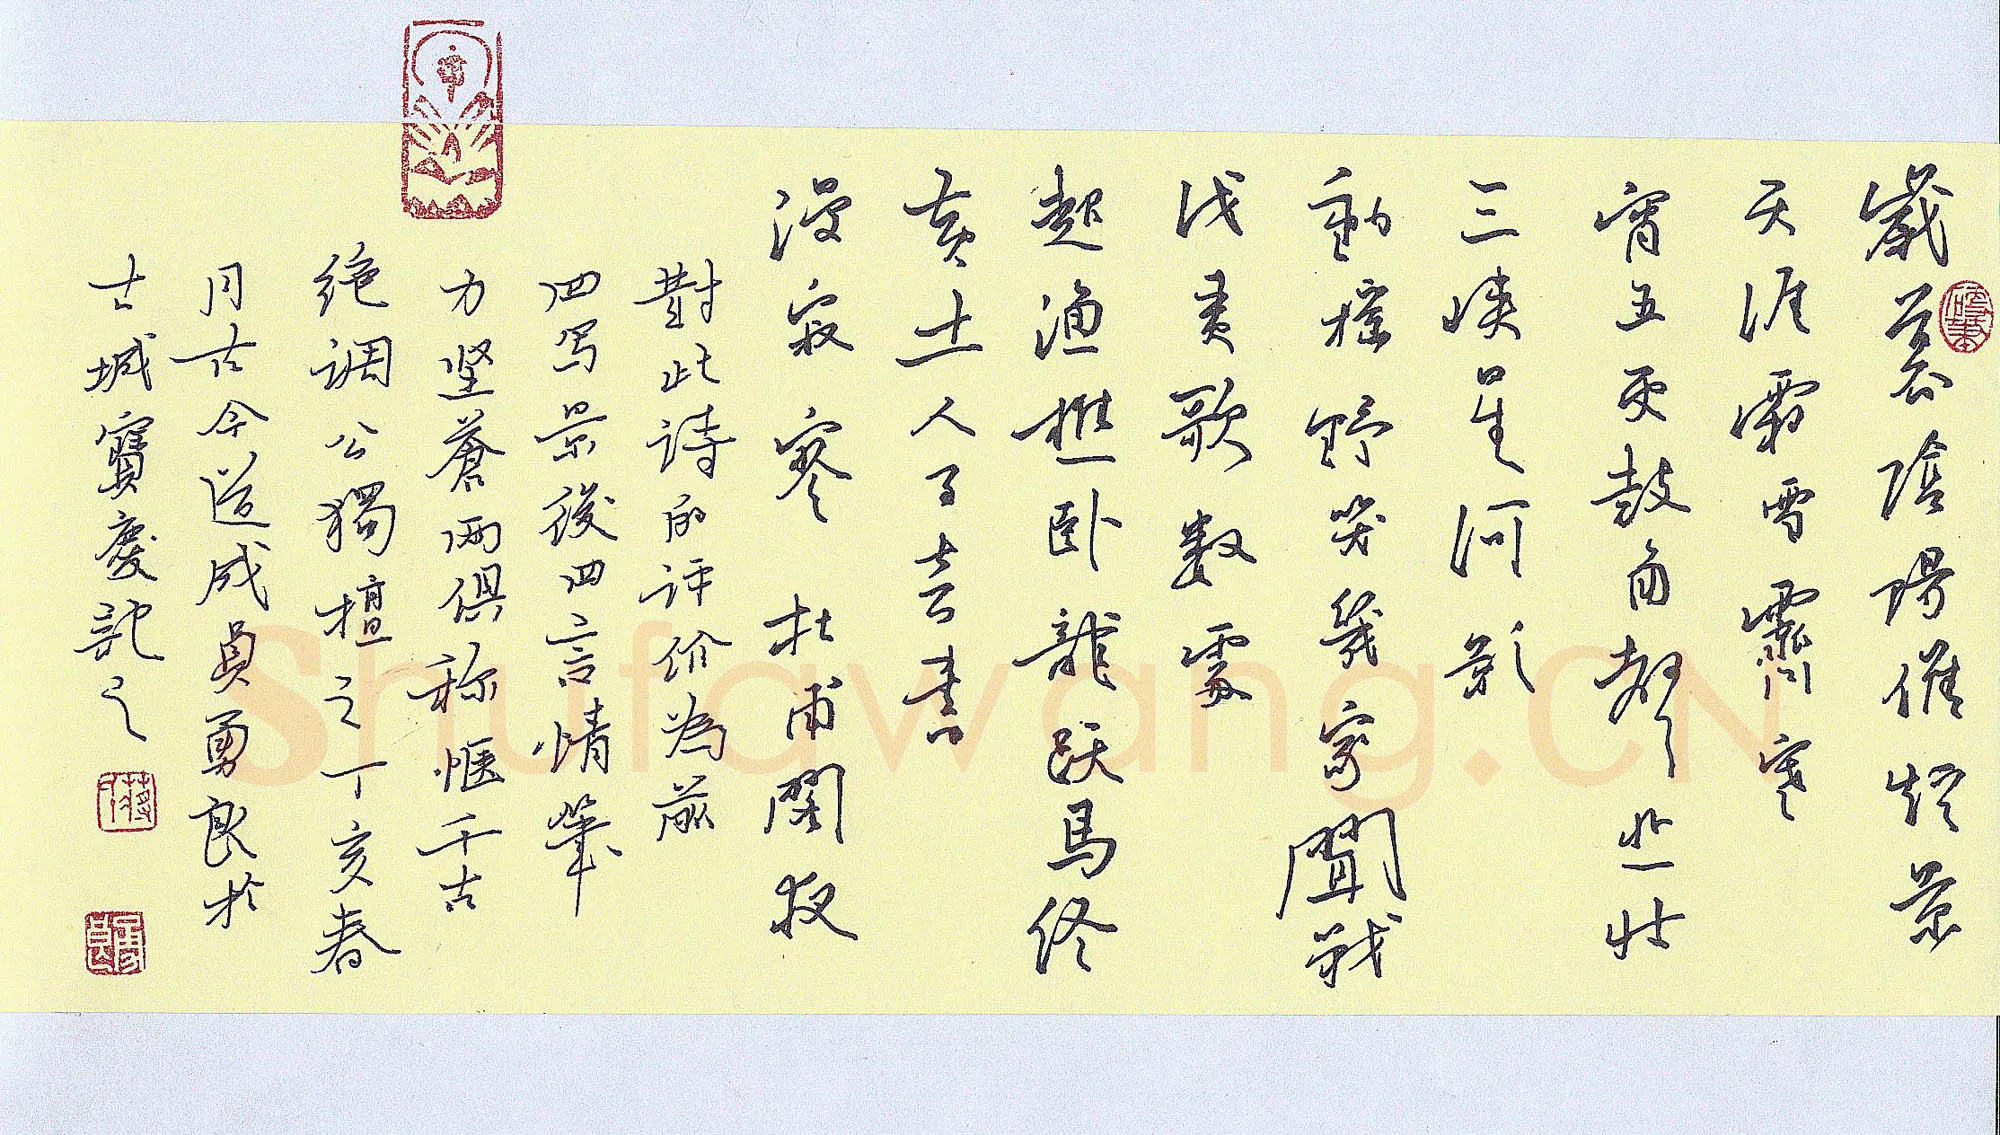 歲暮陰陽催短景
天涯霜雪霽寒
宵五更鼓角聲悲壯
三峽星河影
動搖野哭幾家聞戰
伐夷歌数處
起漁樵卧龍跃馬終
黃土人事音書
漫寂寥 杜甫閣夜
對此诗的评价為前
四写景後四言情筆
力坚蒼两俱称惬千古
绝调公獨擅之丁亥春
月古今道成員勇良於
古城寶慶記之
Shufawang.CN